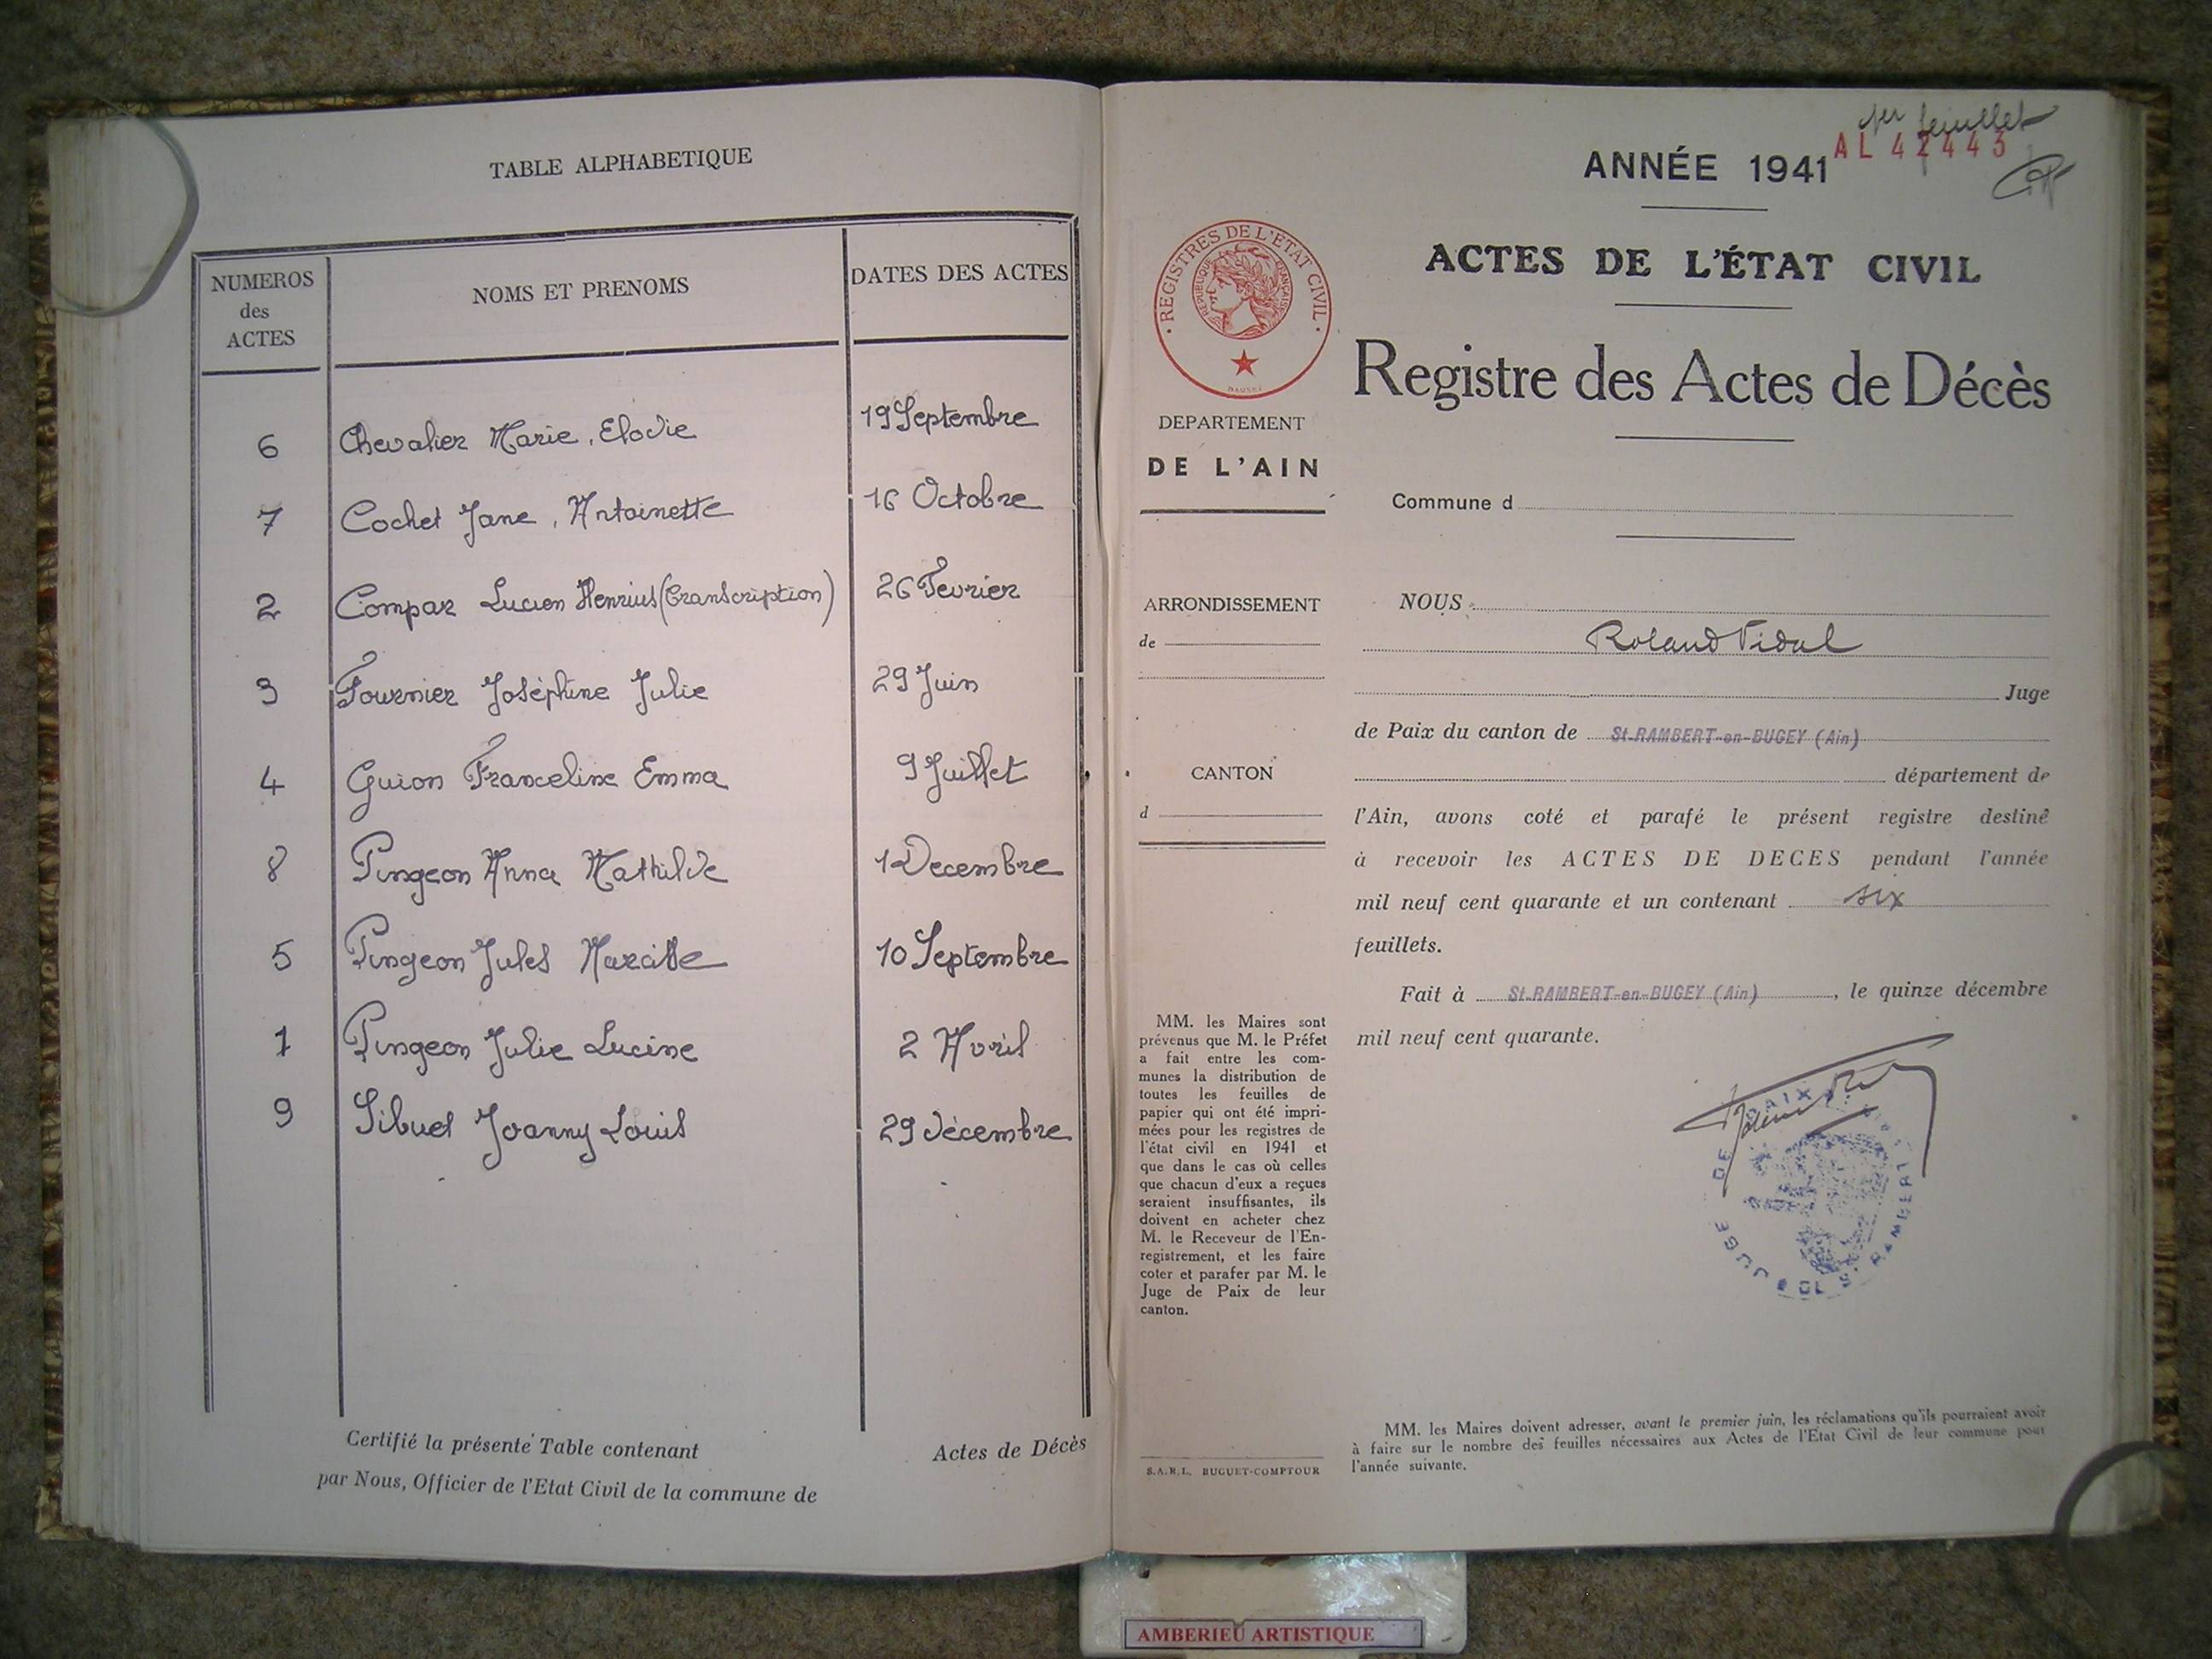 TABLE ALPHABETIQUE
NUMEROS
des
ACTES
NOMS ET PRENOMS
DATES DES ACTES
6 Chevalier Marie, Elodie 19 Septembre
7 Cochet Jane, Antoinette 16 Octobre
2 Compar Lucien Henrius (transcription) 26 Fevrier
3 Fournier Joséphine Julie 29 Juin
4 Guion Franceline Emma 9 Juillet
8 Pingeon Anna Mathilde 1 Decembre
5 Pingeon Jules 10 Septembre
1 Pingeon Julie Lucine 2 Avril
9 Sibuet Joanny Louis 29 décembre
Certifié la présente Table contenant Actes de Décès
par Nous, Officier de l'Etat Civil de la commune de
1er feuillet
AL 42443
ANNÉE 1941
ACTES DE L'ÉTAT CIVIL
Registre des Actes de Décès
REGISTRES DE L'ÉTAT CIVIL
RÉPUBLIQUE FRANÇAISE
DEPARTEMENT
DE L'AIN
ARRONDISSEMENT
de
CANTON
d
MM. les Maires sont
prévenus que M. le Préfet
a fait entre les com-
munes la distribution de
toutes les feuilles de
papier qui ont été impri-
mées pour les registres de
l'état civil en 1941 et
que dans le cas où celles
que chacun d'eux a reçues
seraient insuffisantes, ils
doivent en acheter chez
M. le Receveur de l'En-
registrement, et les faire
coter et parafer par M. le
Juge de Paix de leur
canton.
S.A.R.L. BUGUET-COMPTOUR
Commune d
NOUS
Roland Vidal
Juge
de Paix du canton de St-RAMBERT-en-BUGEY (Ain)
département de
l'Ain, avons coté et parafé le présent registre destiné
à recevoir les ACTES DE DECES pendant l'année
mil neuf cent quarante et un contenant six
feuillets.
Fait à St-RAMBERT-en-BUGEY (Ain), le quinze décembre
mil neuf cent quarante.
JUGE DE PAIX
St RAMBERT
MM. les Maires doivent adresser, avant le premier juin, les réclamations qu'ils pourraient avoir
à faire sur le nombre des feuilles nécessaires aux Actes de l'Etat Civil de leur commune pour
l'année suivante.
AMBERIEU ARTISTIQUE